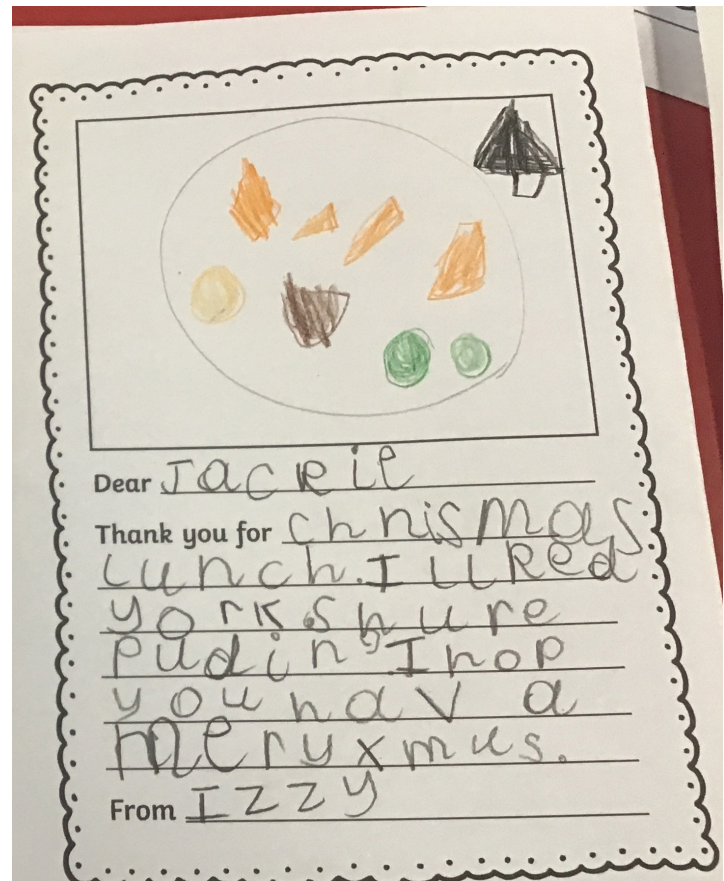 Dear Jackie
Thank you for chrismas
Lunch. I liked
york shure
pudin, I hop
you hav a
mery xmus.
From Izzy